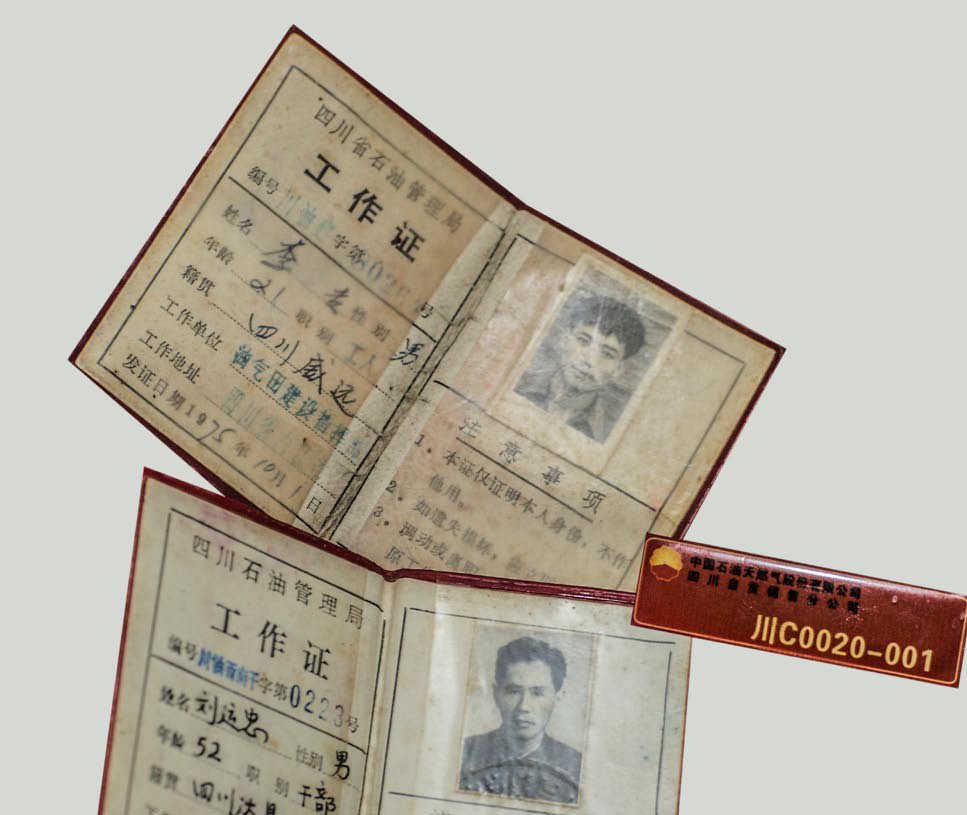 四川省石油管理局
工作证
编号川油 字第02 号
姓名 李 性别 男
年龄 21 职别 工人
籍贯 四川威远
工作单位 油气田建设指挥部
工作地址 四川
发证日期1975年10月1日
注意事项
1. 本证仅证明本人身份，不作
他用。
2. 如遗失损坏，
3. 调动或离职
原工
四川石油管理局
工作证
编号 字第0223号
姓名 刘运忠 性别 男
年龄 52 职别 干部
籍贯 四川达县
中国石油天然气股份有限公司
四川自贡销售分公司
川C0020-001